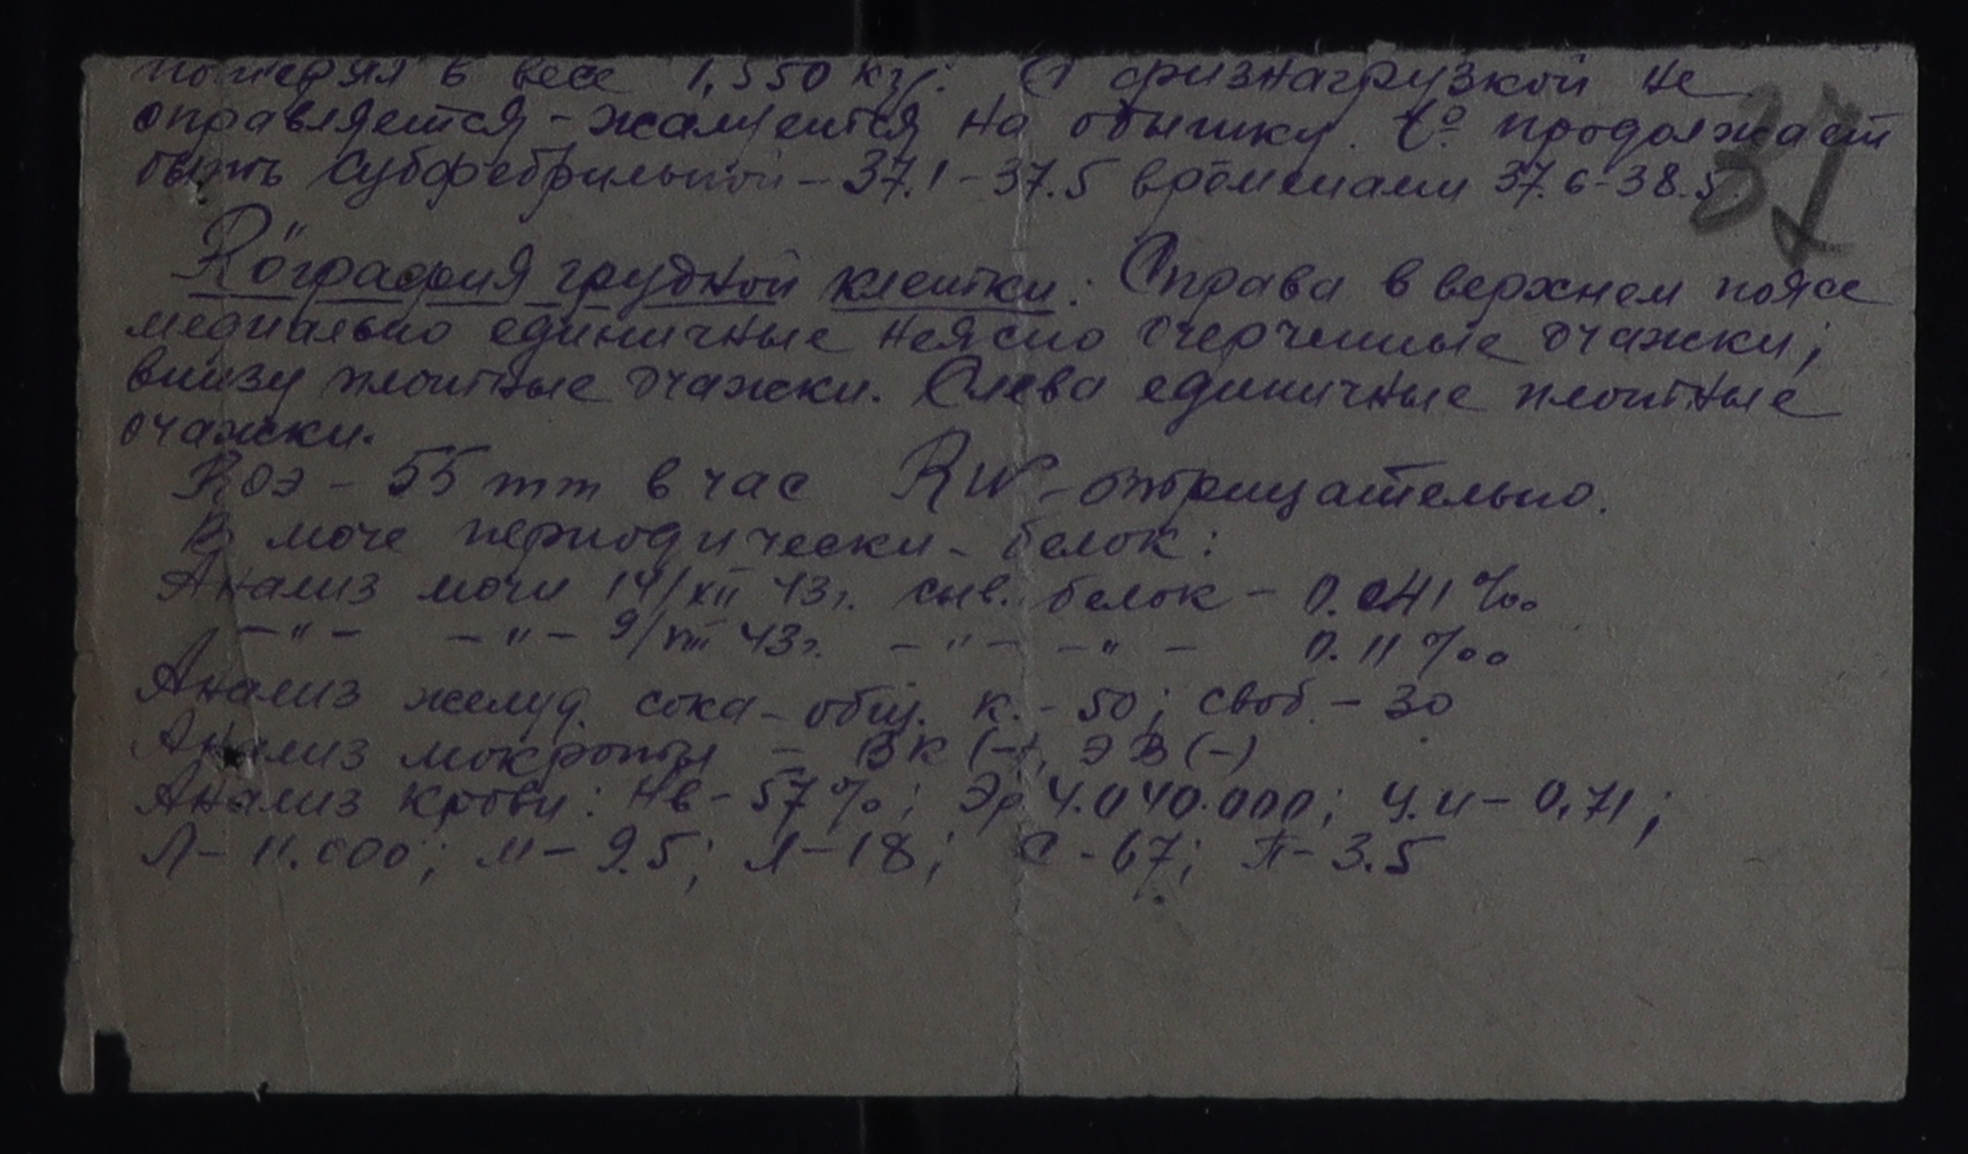 потерял в весе 1,550 кг. С физнагрузкой не
справляется - жалуется на одышку. t° продолжает
быть субфебрильной - 37.1 - 37.5 временами 37.6 - 38.5
37
Röграфия грудной клетки: Справа в верхнем поясе
медиально единичные неясно очерченные очажки;
внизу плотные очажки. Слева единичные плотные
очажки.
ROЭ - 55 mm в час RW - отрицательно.
В моче периодически - белок:
Анализ мочи 14/XII 43г. сыв. белок - 0.041 ‰
-"- -"- 9/VIII 43г. -"- -"- 0.11 ‰
Анализ желуд. сока - общ. к. - 50; своб. - 30
Анализ мокроты - ВК (-), ЭВ (-)
Анализ крови: Нв - 57%; Эр 4.040.000; Ц.и - 0,71;
Л - 11.600; М - 9.5; Л - 18; С - 67; П - 3.5